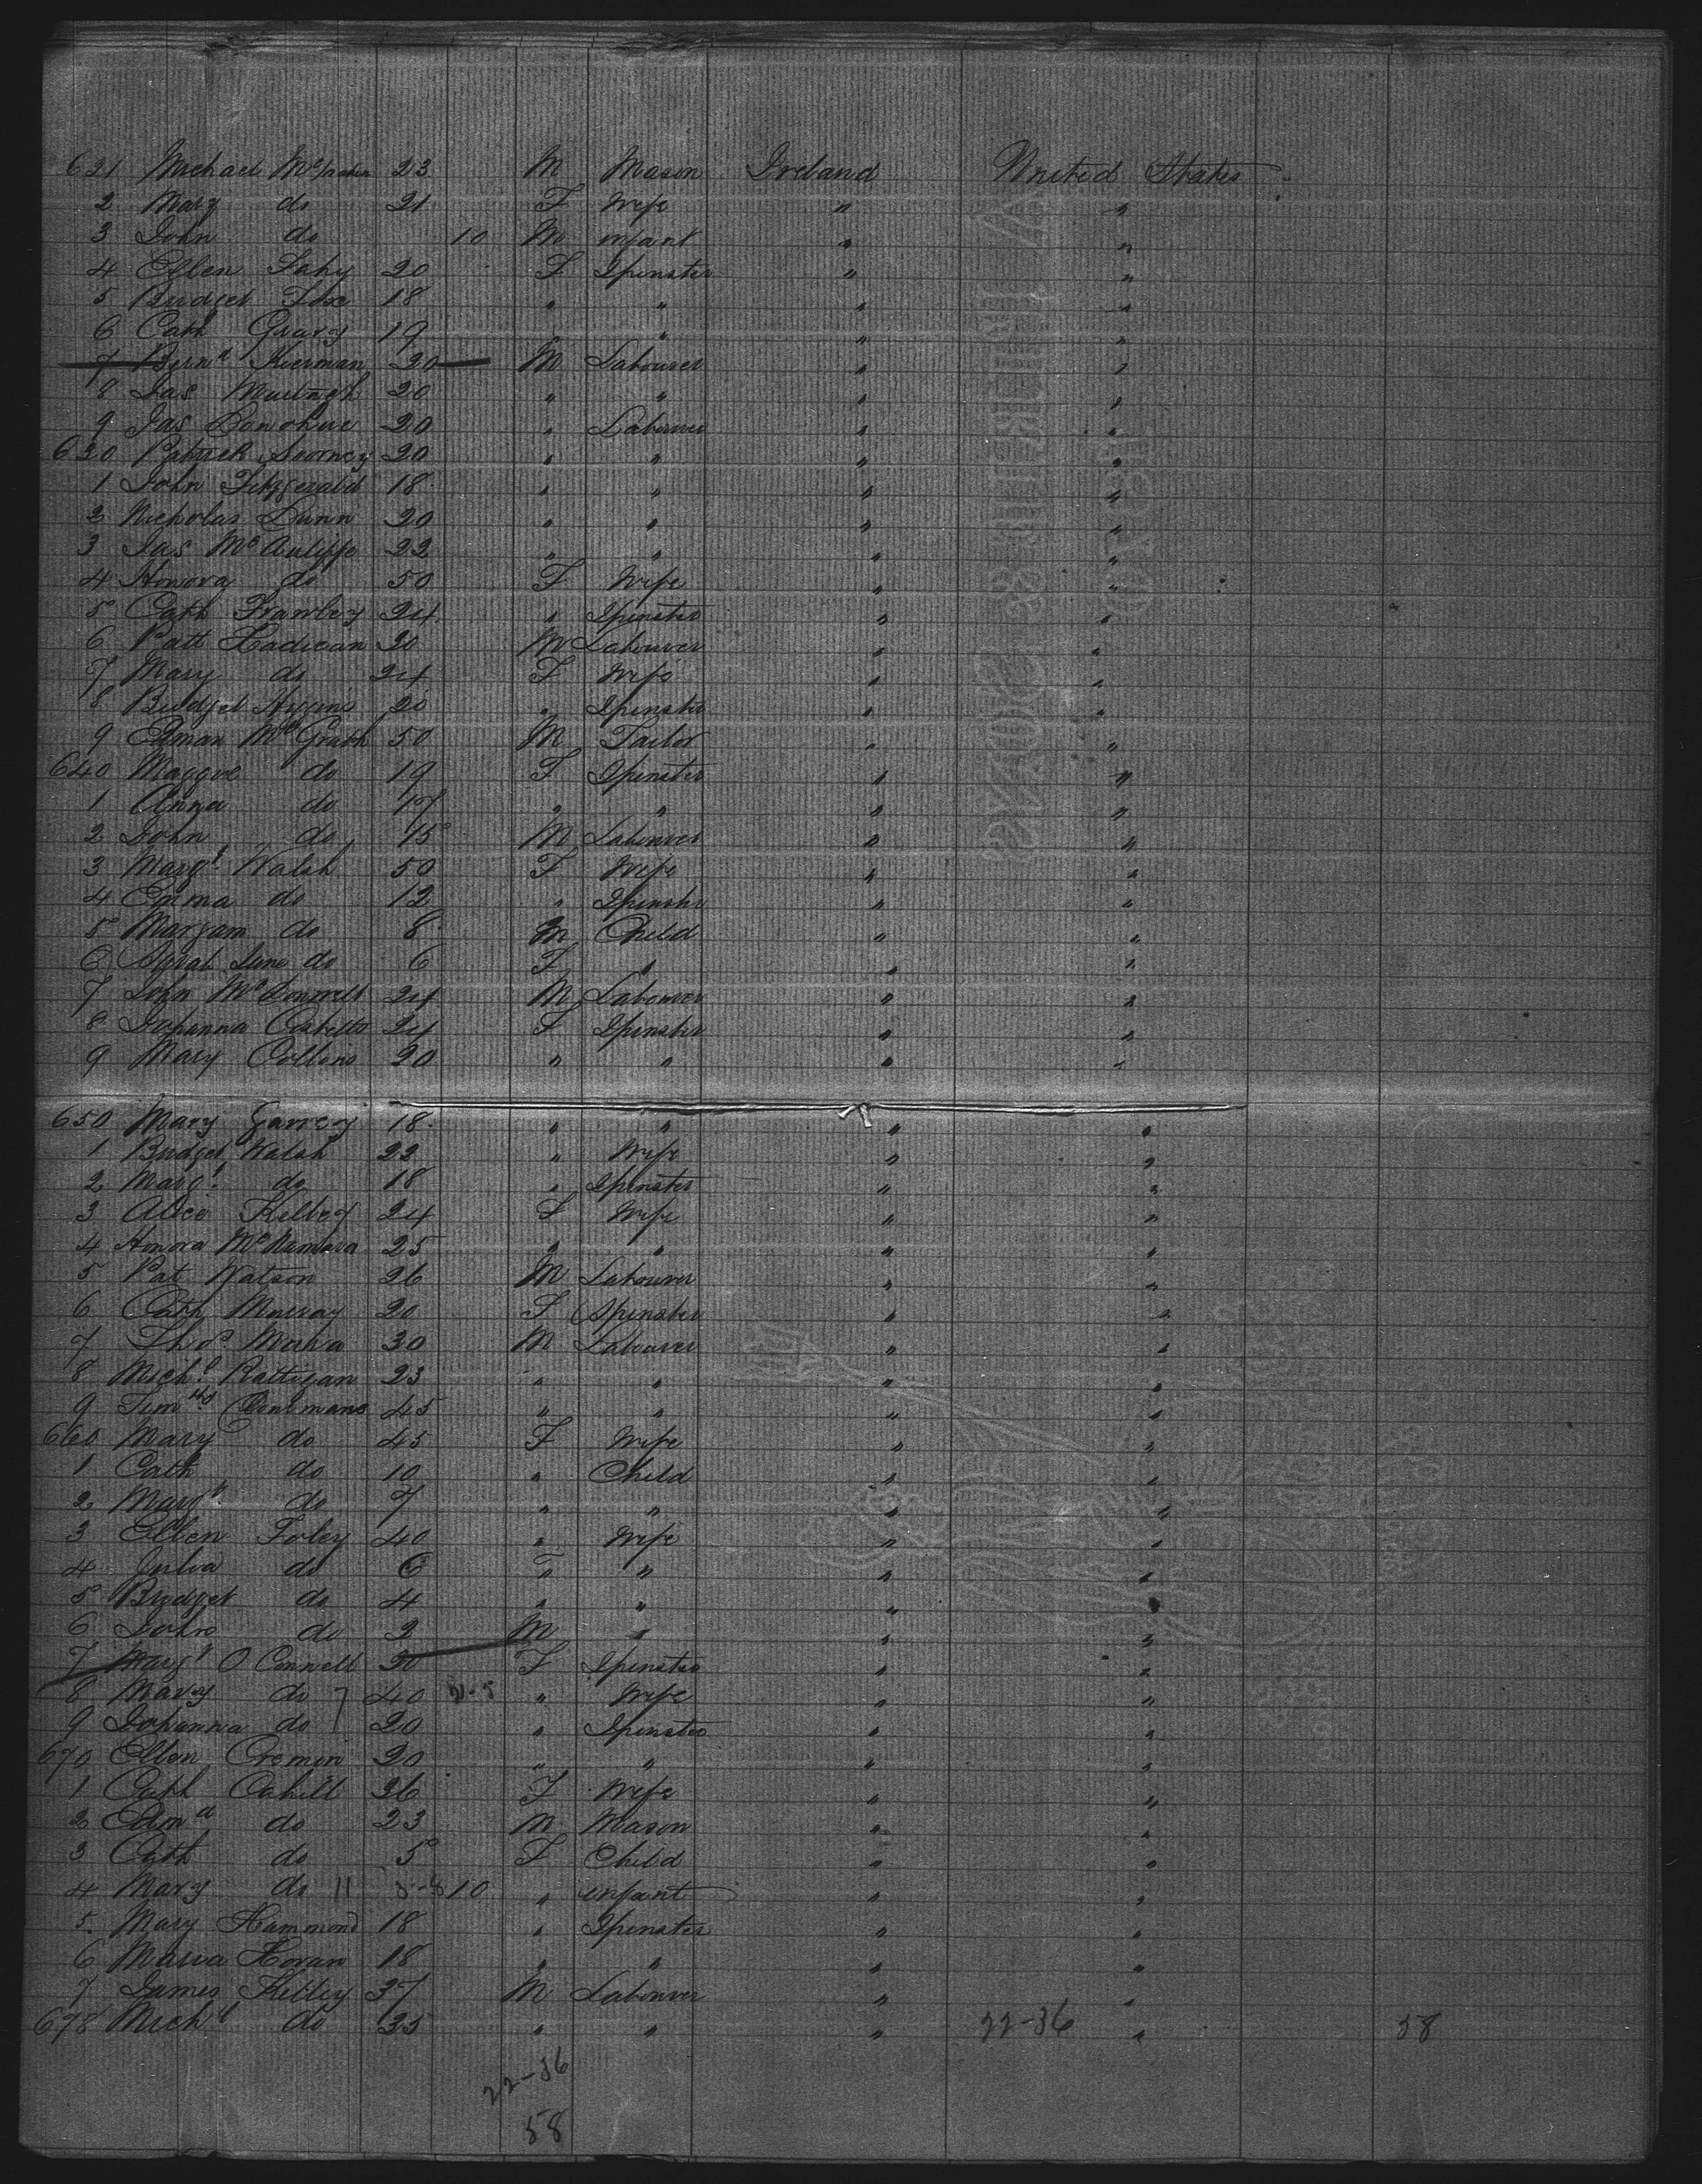 621 Michael Mc 23 M Mason Ireland United States
2 Mary do 21 F Wife " "
3 John do 10 M infant " "
4 Ellen Fahy 20 F Spinster " "
5 Bridget Fox 18 " " " "
6 Cath Geary 19 " " " "
7 Bernd Kiernan 20 M Labourer " "
8 Jas Murtagh 20 " " " "
9 Jas Donohue 20 " Labourer " "
630 Patrick 20 " " " "
1 John Fitzgerald 18 " " " "
2 Nicholas Dunn 20 " " " "
3 Jas McAuliffe 22 " " " "
4 Honora do 50 F Wife " "
5 Cath Frawley 24 " Spinster " "
6 Patt Hadican 30 M Labourer " "
7 Mary do 24 F Wife " "
8 Bridget Higgins 20 " Spinster " "
9 Edman McGrath 50 M Tailor " "
640 Maggie do 19 F Spinster " "
1 Anna do 17 " " " "
2 John do 15 M Labourer " "
3 Margt. Walsh 50 F Wife " "
4 Emma do 12 " Spinster " "
5 do 8 M Child " "
6 Sarah Jane do 6 F " " "
7 John McDonnell 24 M Labourer " "
8 Johanna Costello 24 F Spinster " "
9 Mary Collins 20 " " " "
650 Mary Garvey 18 " " " "
1 Bridget Walsh 22 " Wife " "
2 Margt. do 18 " Spinster " "
3 Alice Kelley 24 F Wife " "
4 Honora McNamara 25 " " " "
5 Pat Watson 26 M Labourer " "
6 Cath Murray 20 F Spinster " "
7 Thos. 30 M Labourer " "
8 Michl. Rattigan 23 " " " "
9 Timthy 45 " " " "
660 Mary do 45 F Wife " "
1 Cath do 10 " Child " "
2 Margt. do 7 " " " "
3 Ellen Foley 40 " Wife " "
4 Julia do 6 F " " "
5 Bridget do 4 " " " "
6 John do 2 M " " "
7 Margt O Connell 20 F Spinster " "
8 Mary do 40 " Wife " "
9 Johanna do 20 " Spinster " "
670 Ellen Cremin 20 " " " "
1 Cath Cahill 26 F Wife " "
2 Edmd do 23 M Mason " "
3 Cath do 5 F Child " "
4 Mary do 11 10 " infant " "
5 Mary Hammond 18 " Spinster " "
6 Maria Horan 18 " " " "
7 James Kelley 37 M Labourer " "
678 Michl do 35 " " " 22-36 " 58
22-36
58